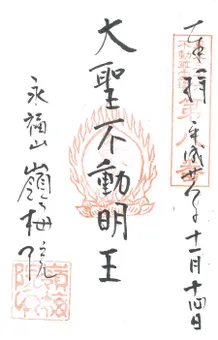 奉拝 平成廿八年十一月十四日
大聖不動明王
永福山 嶺梅院